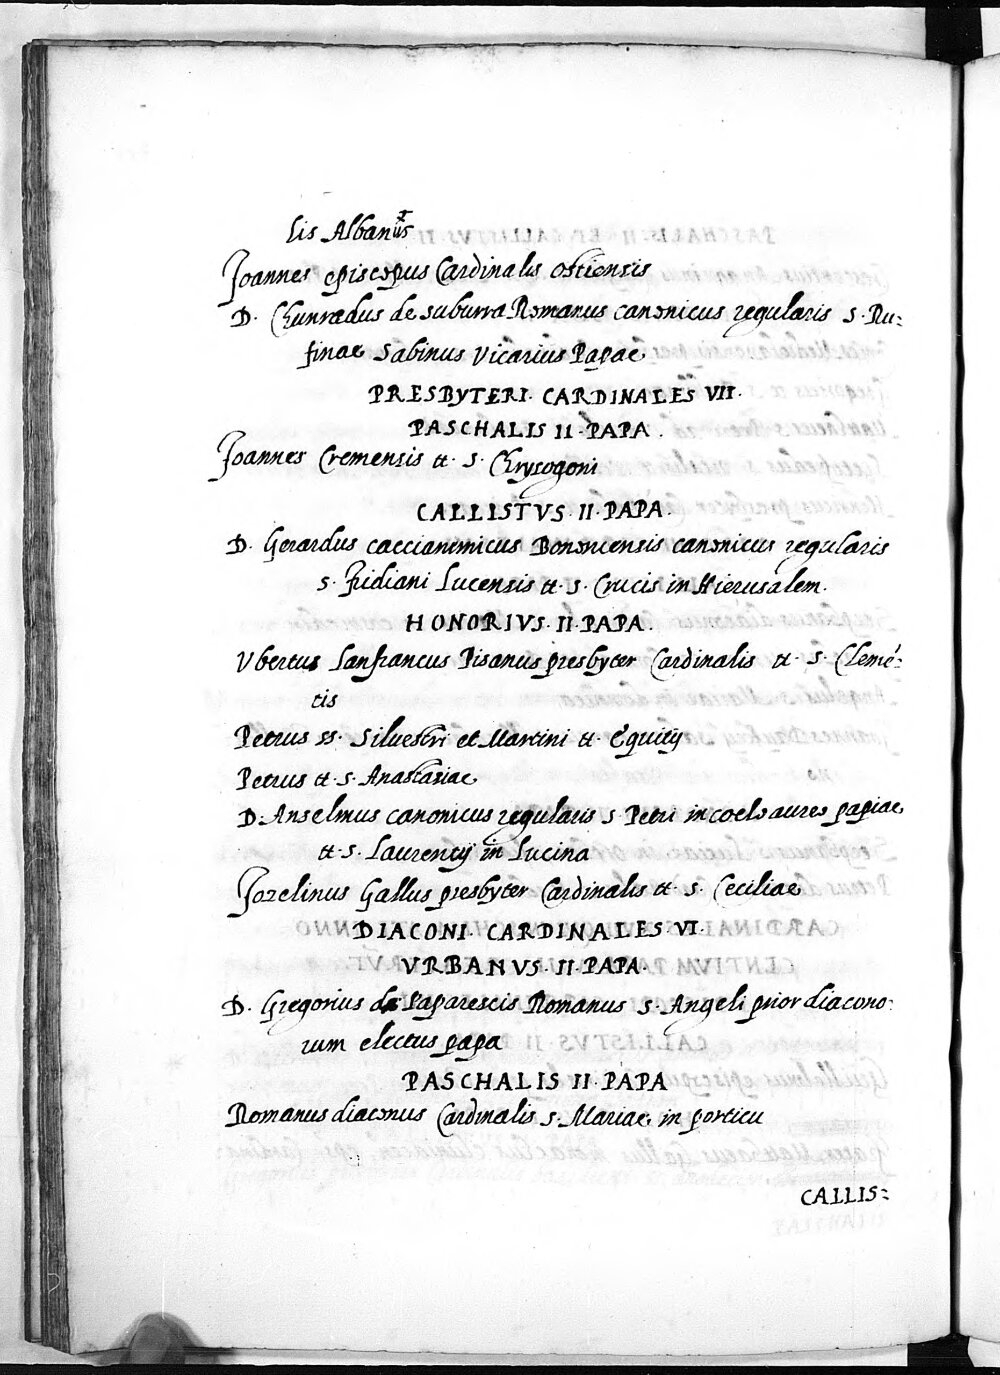 lis Albanus
Joannes episcopus Cardinalis ostiensis
D. Chunradus de suburra Romanus canonicus regularis S. Ru:
finae Sabinus Vicarius Papae
PRESBYTERI CARDINALES VII.
PASCHALIS II PAPA.
Joannes Cremensis tt. S. Chrysogoni
CALLISTVS II PAPA.
D. Gerardus caccianimicus Bononiensis canonicus regularis
S. Fridiani Lucensis tt. S. Crucis in Hierusalem.
HONORIVS II PAPA.
Vbertus Lanfrancus Pisanus presbyter Cardinalis tt. S. Clemé:
tis
Petrus SS. Silvestri et Martini tt. Equitij
Petrus tt. S. Anastasiae
D. Anselmus canonicus regularis S. Petri in coelo aureo papiae
tt. S. Laurentij in Lucina
Jozelinus Gallus presbyter Cardinalis tt. S. Ceciliae
DIACONI CARDINALES VI.
VRBANVS II PAPA.
D. Gregorius de Paparescis Romanus S. Angeli prior diacono:
rum electus papa
PASCHALIS II PAPA
Romanus diaconus Cardinalis S. Mariae in porticu
CALLIS: